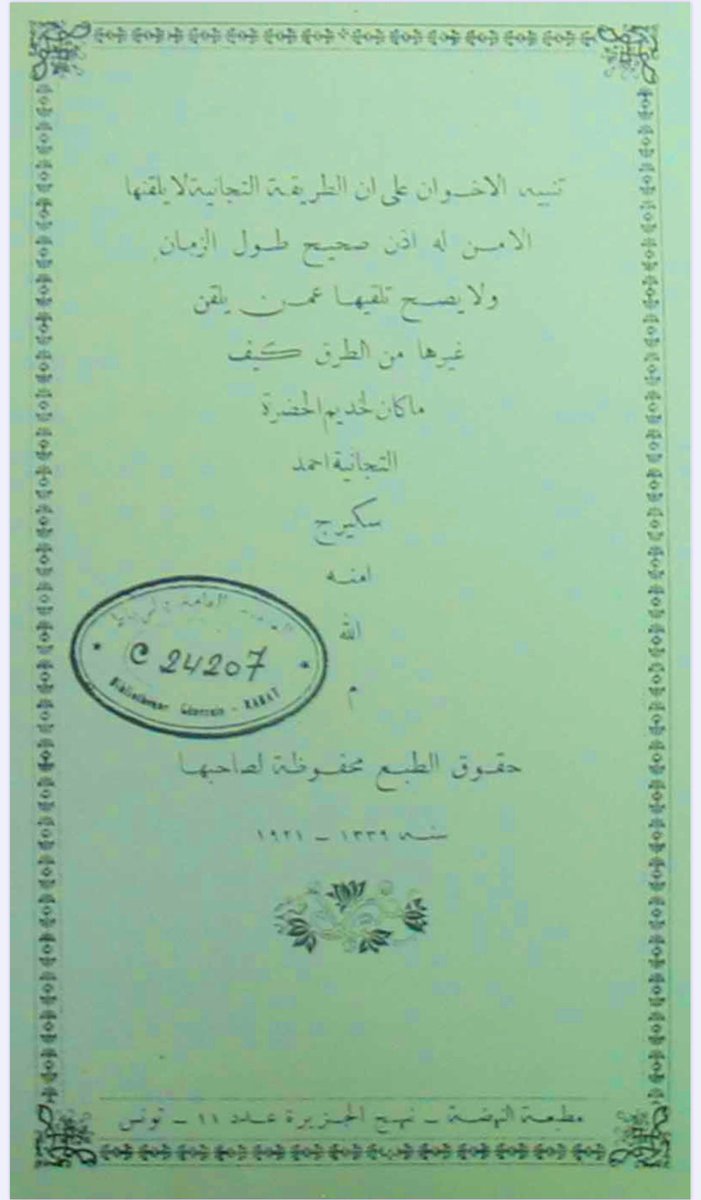 تنبيه الاخوان على ان الطريقة التجانية لا يلقنها
الا من له اذن صحيح طول الزمان
ولا يصح تلقيها عمن يلقن
غيرها من الطرق كيف
ما كان لخديم الحضرة
التجانية احمد
سكيرج
امنه
الله
م
C 24207
Bibliothèque Générale - RABAT
حقوق الطبع محفوظة لصاحبها
سنه ١٣٣٩ - ١٩٢١
مطبعة النهضة - نهج الجزيرة عدد ١١ - تونس